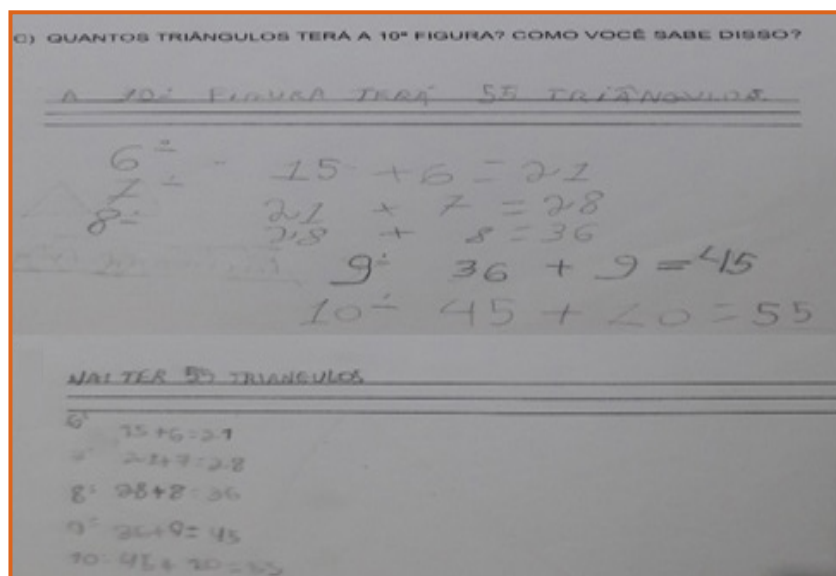 C) QUANTOS TRIÂNGULOS TERÁ A 10ª FIGURA? COMO VOCÊ SABE DISSO?
A 10ª FIGURA TERÁ 55 TRIÂNGULOS.
6ª - 15 + 6 = 21
7ª 21 + 7 = 28
8ª 28 + 8 = 36
9ª 36 + 9 = 45
10ª 45 + 10 = 55
VAI TER 55 TRIANGULOS
6ª 15+6=21
7ª 21+7=28
8ª 28+8=36
9ª 36+9=45
10ª 45+10=55